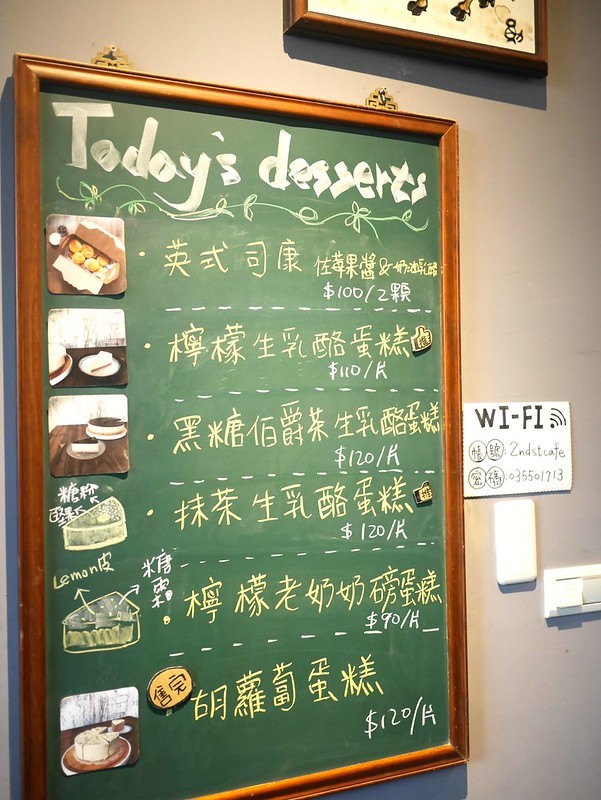 Today's desserts
英式司康 佐莓果醬&奶油乳酪
$100/2顆
檸檬生乳酪蛋糕
$110/片
黑糖伯爵茶生乳酪蛋糕
$120/片
糖粉
堅果
抹茶生乳酪蛋糕
$120/片
Lemon皮
糖霜
檸檬老奶奶磅蛋糕
$90/片
售完
胡蘿蔔蛋糕
$120/片
WI-FI
帳號:2ndstcafe
密碼:035501713